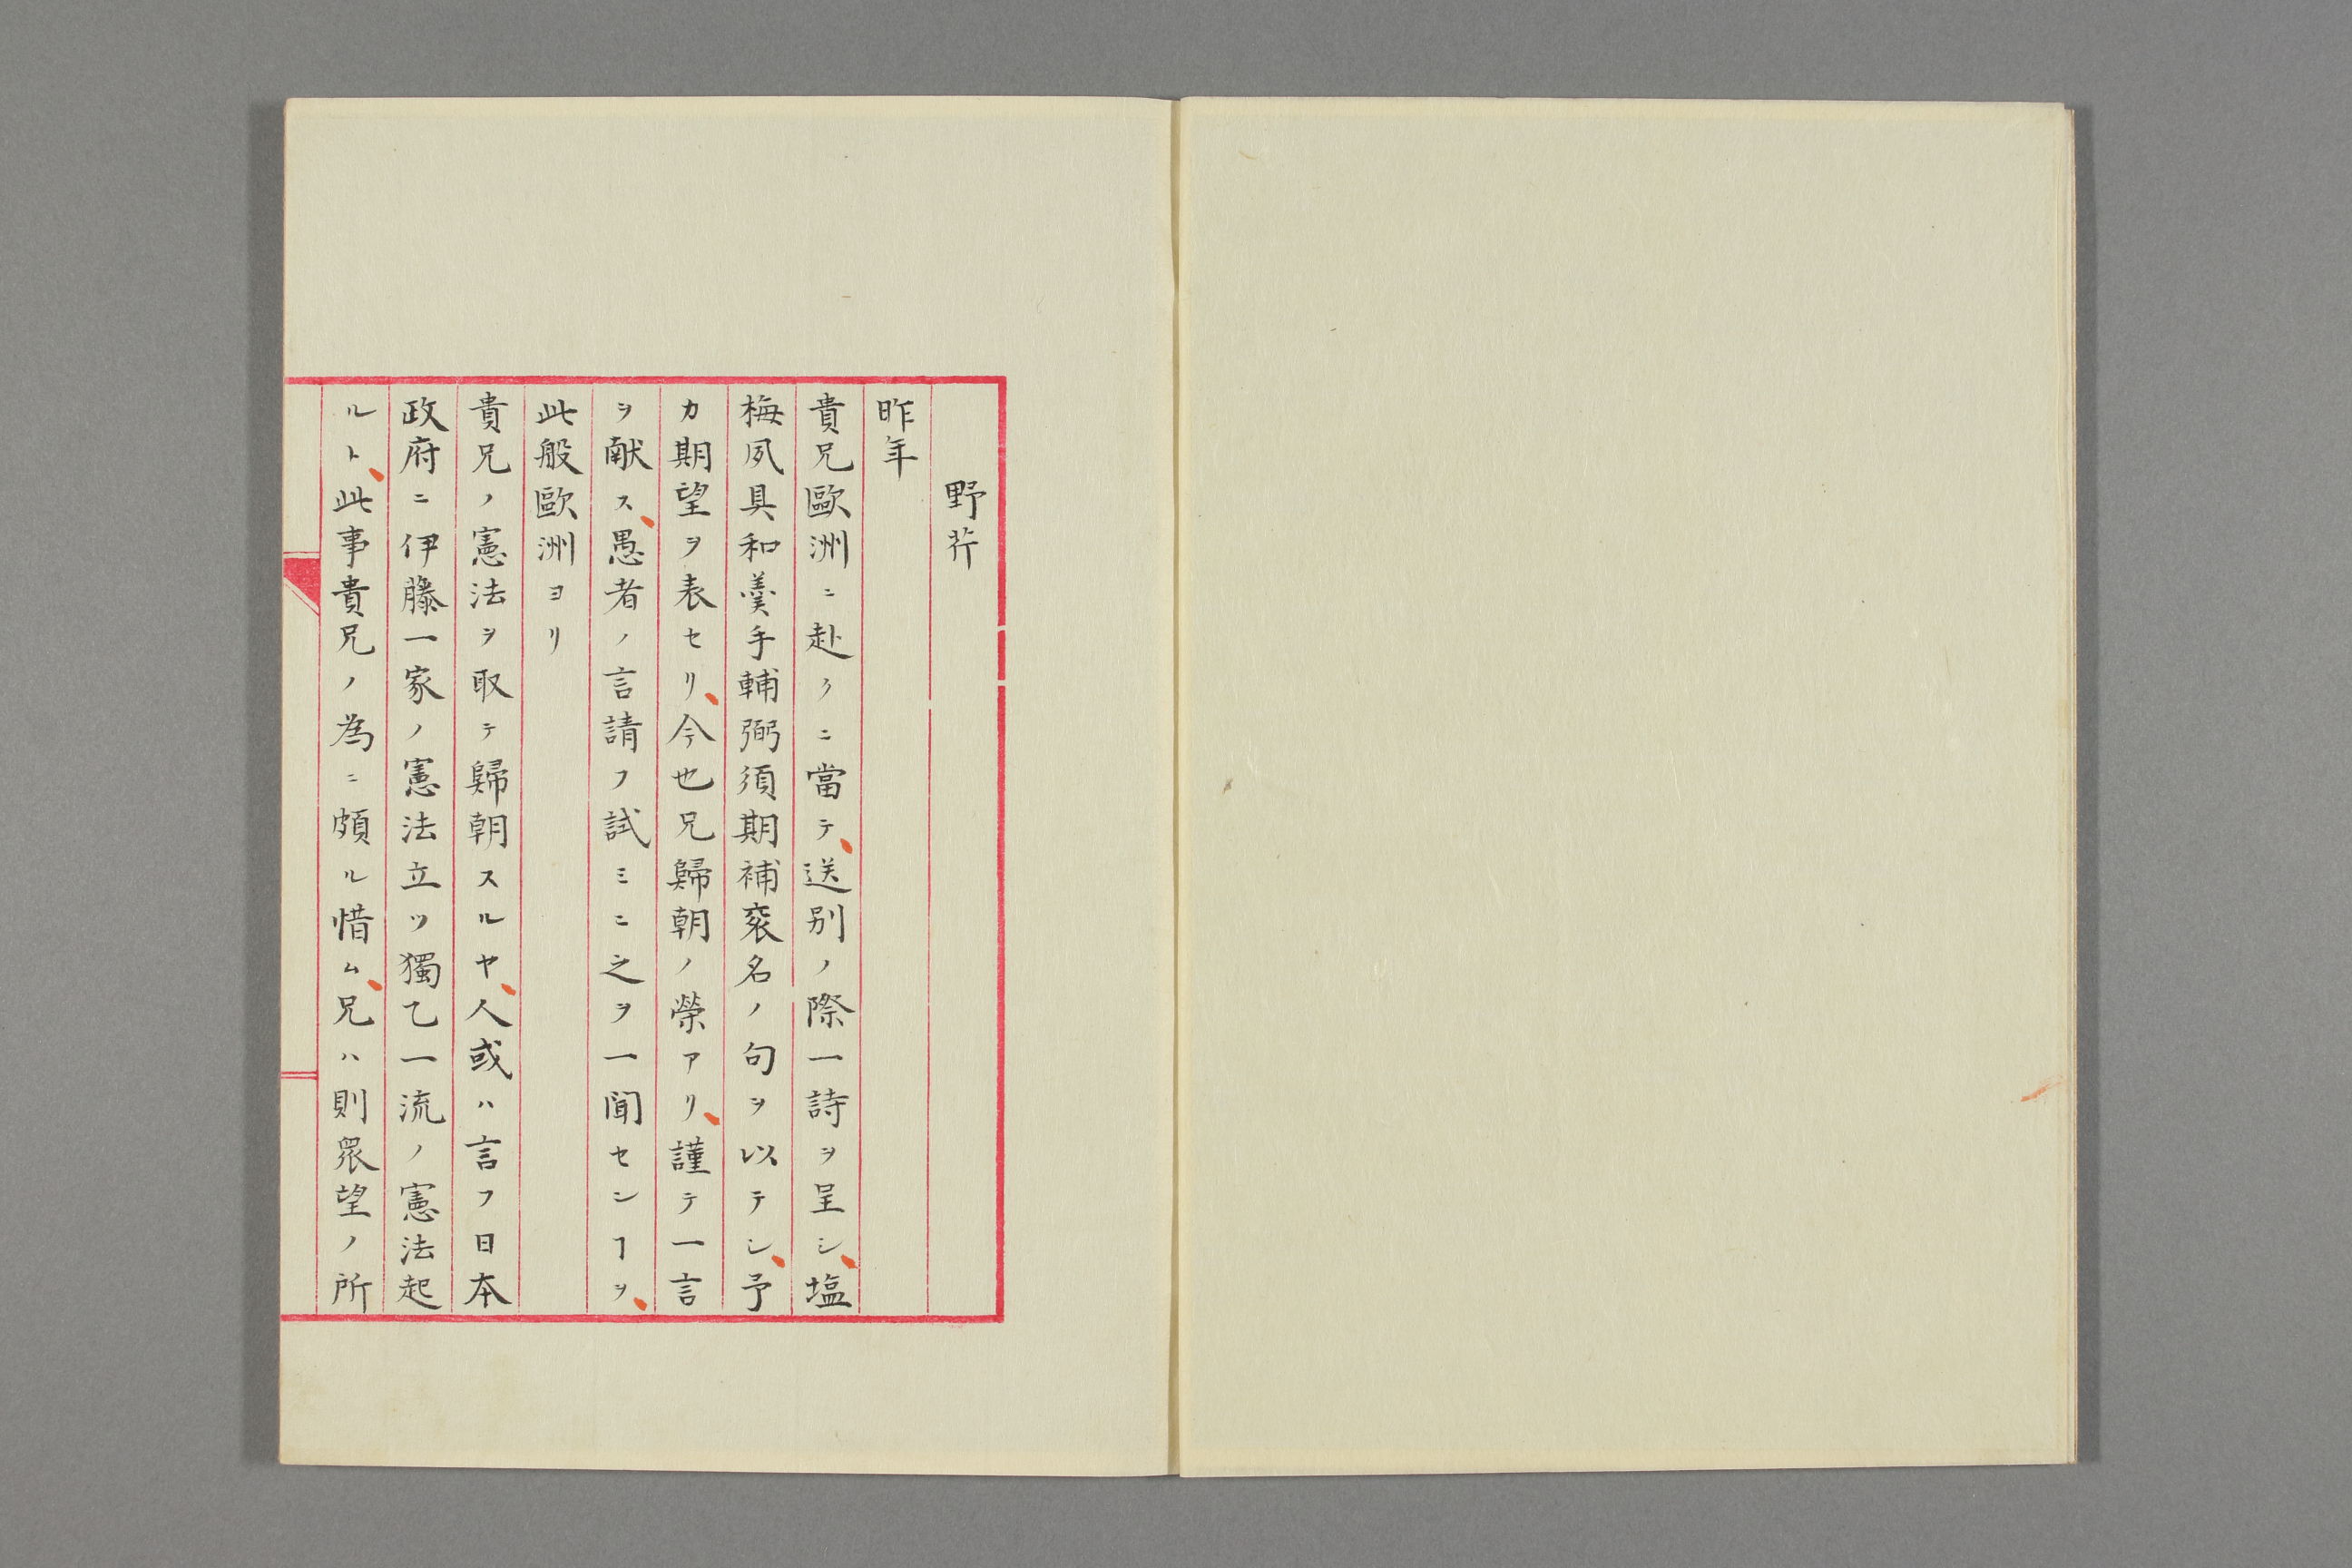 野芹
昨年
貴兄歐洲ニ赴クニ當テ、送别ノ際一詩ヲ呈シ、塩
梅夙具和羹手輔弼須期補衮名ノ句ヲ以テシ、予
カ期望ヲ表セリ、今也兄歸朝ノ榮アリ、謹テ一言
ヲ献ス、愚者ノ言請フ試ミニ之ヲ一聞センヿヲ、
此般歐洲ヨリ
貴兄ノ憲法ヲ取テ歸朝スルヤ、人或ハ言フ日本
政府ニ伊藤一家ノ憲法立ツ獨乙一流ノ憲法起
ルト、此事貴兄ノ為ニ頗ル惜ム、兄ハ則衆望ノ所